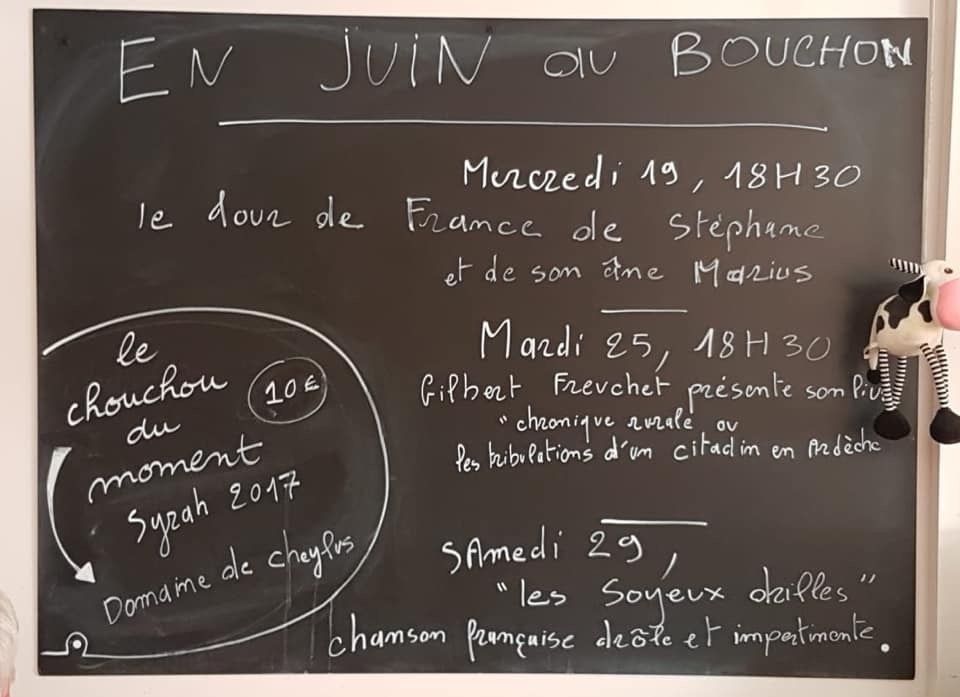 EN JUIN au BOUCHON
Mercredi 19, 18H30
le dour de France de Stéphane
et de son âne Marius
Mardi 25, 18H30
Gilbert Freuchet présente son
"chronique rurale ou
les tribulations d'un citadin en Ardèche
SAmedi 29,
"les Soyeux drilles"
chanson française drôle et impertinente.
le
chouchou
10€
du
moment
Syrah 2017
Domaine de cheylus